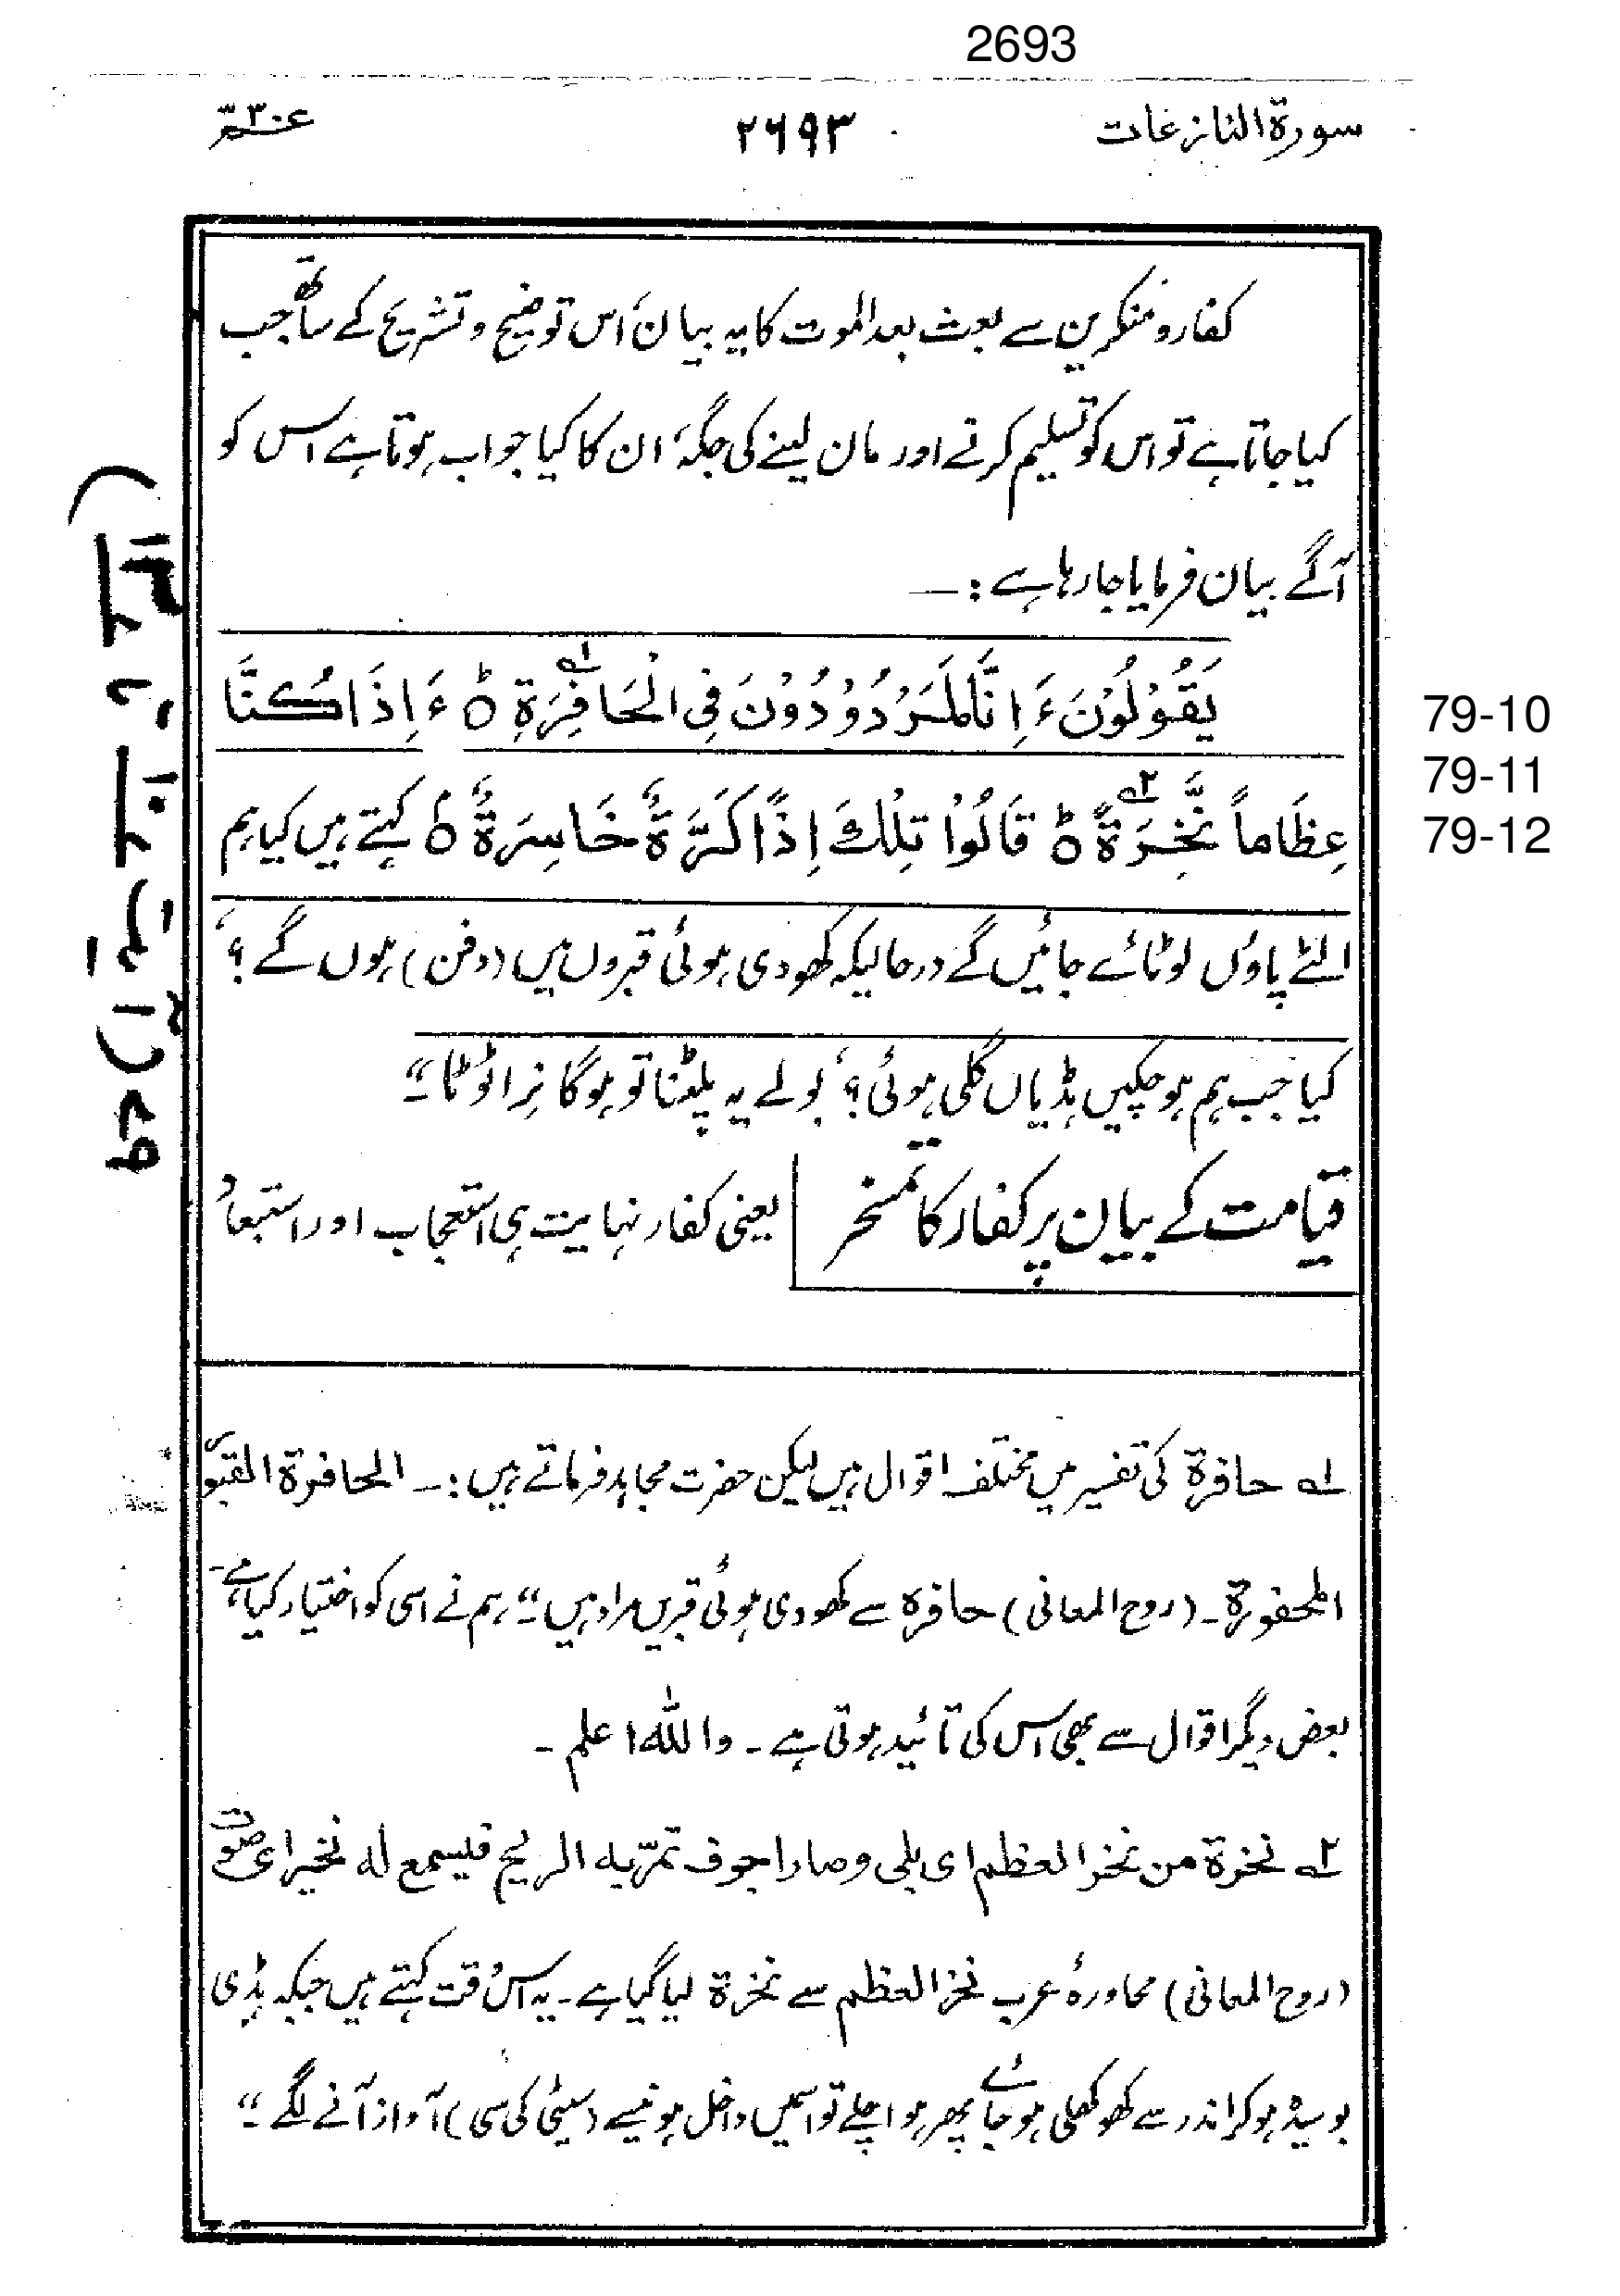 2693
سورۃ النازعات ۲۶۹۳ عمّ ۳۰
کفار و منکرین سے بعث بعد الموت کا یہ بیان، اس توضیح و تشریح کے ساتھ جب
کیا جاتا ہے تو اس کو تسلیم کرتے اور مان لینے کی جگہ، ان کا کیا جواب ہوتا ہے اس کو
آگے بیان فرمایا جا رہا ہے :—
یَقُوْلُوْنَ ءَ اِنَّا لَمَرْدُوْدُوْنَ فِی الْحَافِرَةِ ۱؎ ۵ ءَ اِذَا كُنَّا
79-10
عِظَاماً نَّخِرَةً ۲؎ ۵ قَالُوْا تِلْكَ اِذًا كَرَّةٌ خَاسِرَةٌ ۵ کہتے ہیں کیا ہم
79-11
79-12
الٹے پاؤں لوٹائے جائیں گے درحالیکہ کھودی ہوئی قبروں میں (دفن) ہوں گے؟،
کیا جب ہم ہو چکیں ہڈیاں گلی ہوئی؟، بولے یہ پلٹنا تو ہوگا نِرا ٹوٹا“۔
قیامت کے بیان پر کفار کا تمسخر | یعنی کفار نہایت ہی استعجاب اور استبعاد
۱؎ حافرۃ کی تفسیر میں مختلف اقوال ہیں لیکن حضرت مجاہد فرماتے ہیں :۔ الحافرة القبور
المحفورة۔ (روح المعانی) حافرہ سے کھودی ہوئی قبریں مراد ہیں۔“ ہم نے اسی کو اختیار کیا ہے۔
بعض دیگر اقوال سے بھی اس کی تائید ہوتی ہے۔ واللہ اعلم۔
۲؎ نخرة من نخر العظم ای بلی وصار اجوف تمرّ به الریح فیسمع له نخیر ای صوت
(روح المعانی) محاورۂ عرب نخر العظم سے نخرۃ لیا گیا ہے۔ یہ اس وقت کہتے ہیں جبکہ ہڈی
بوسیدہ ہو کر اندر سے کھوکھلی ہو جائے پھر ہوا چلے تو اسمیں داخل ہونیسے (سیٹی کی سی) آواز آنے لگے“۔
۷۹ (آیت ۱۰ تا ۱۲)